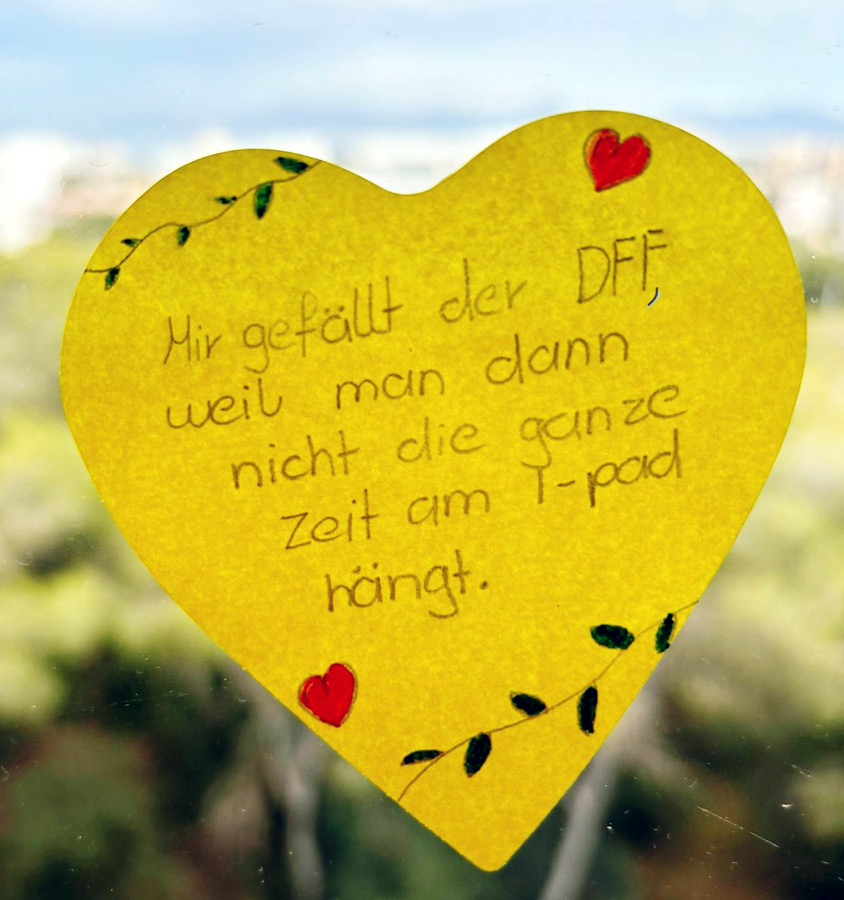 Mir gefällt der DFF,
weil man dann
nicht die ganze
Zeit am I-pad
hängt.